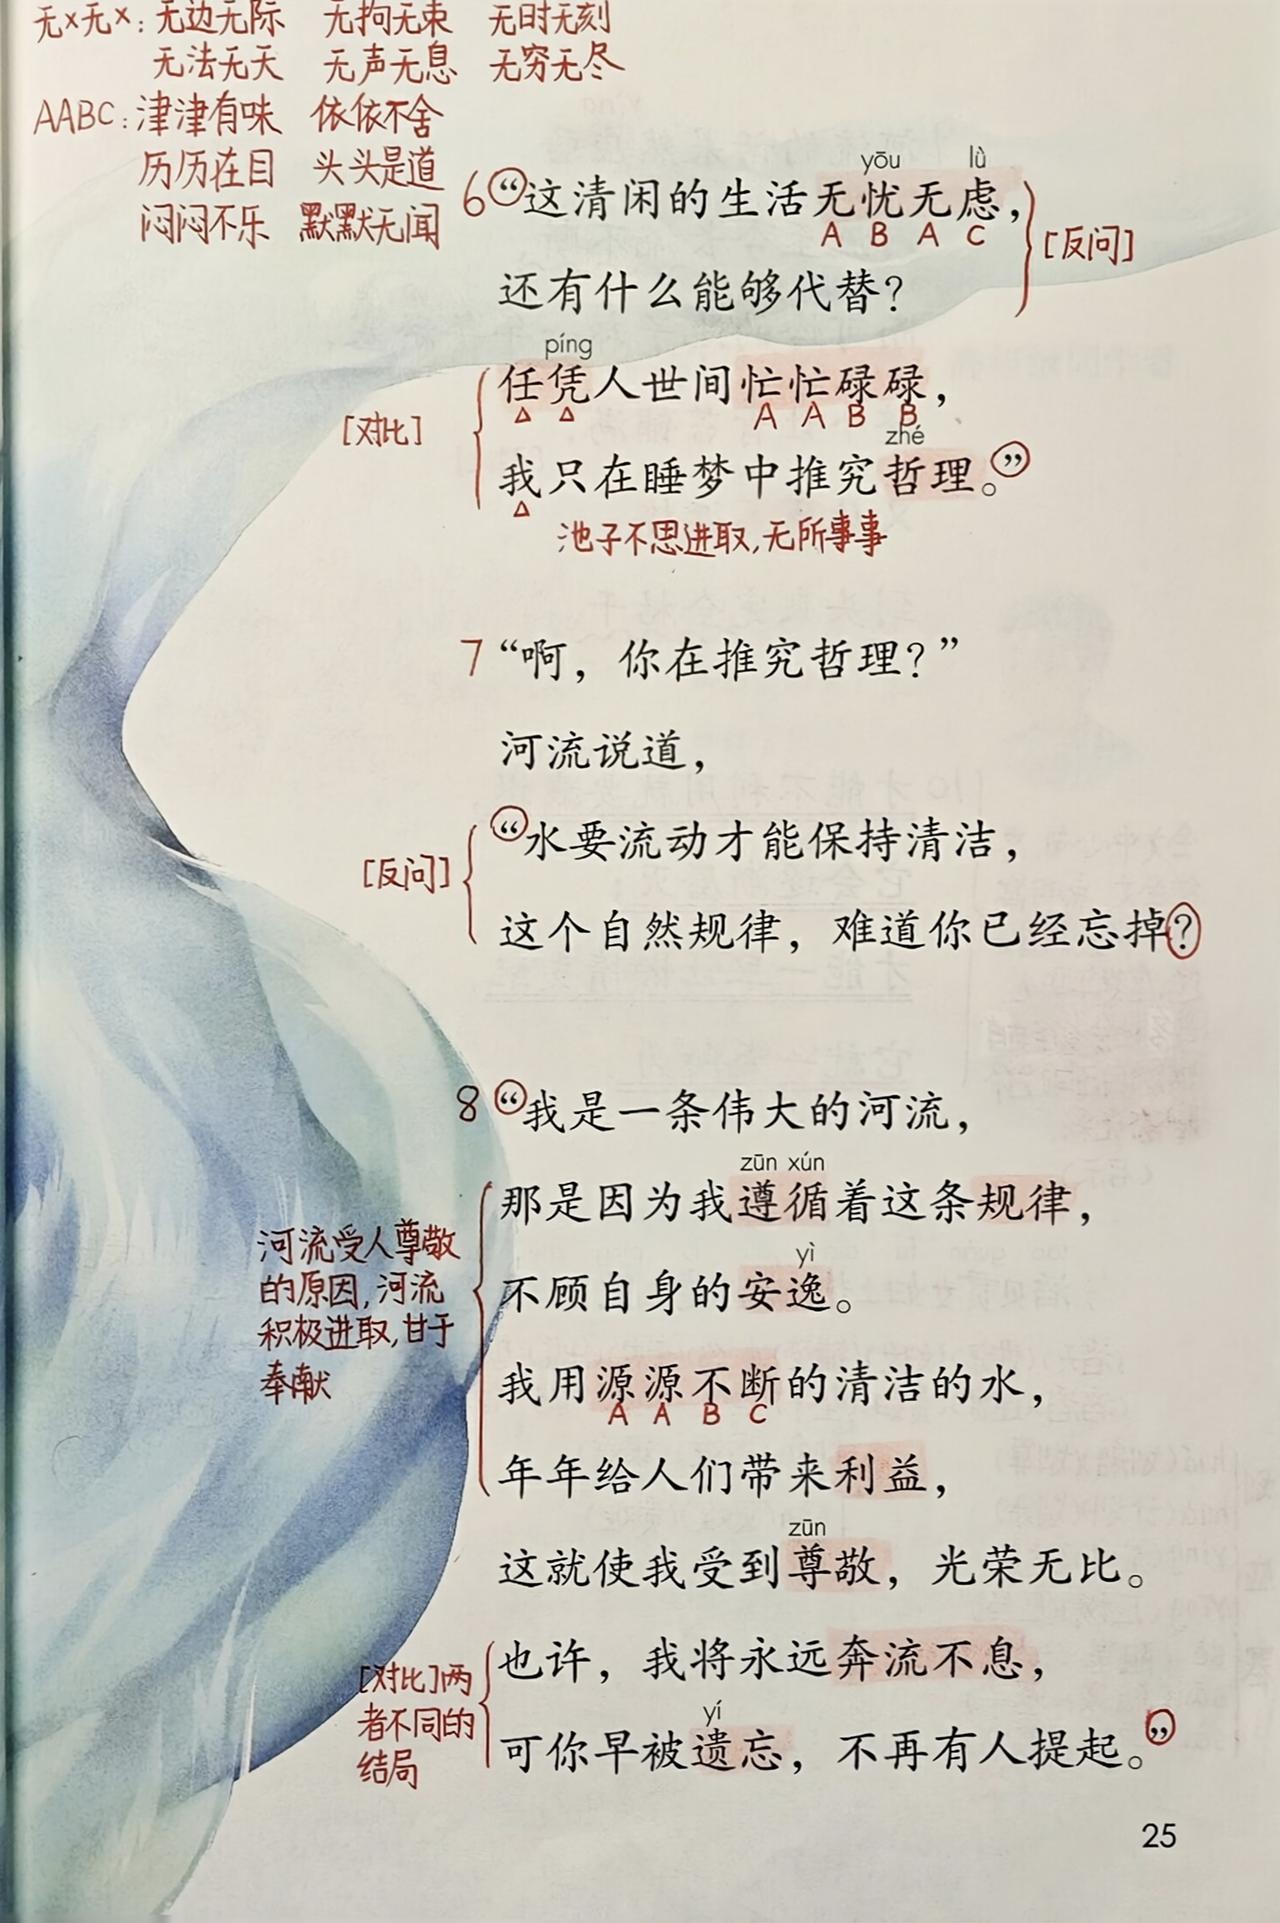 无×无×：无边无际 无拘无束 无时无刻
无法无天 无声无息 无穷无尽
AABC：津津有味 依依不舍
历历在目 头头是道
闷闷不乐 默默无闻
yōu lǜ
6 “这清闲的生活无忧无虑，
A B A C
[反问]
还有什么能够代替？
píng
任凭人世间忙忙碌碌，
A A B B
[对比]
zhé
我只在睡梦中推究哲理。”
池子不思进取，无所事事
7 “啊，你在推究哲理？”
河流说道，
“水要流动才能保持清洁，
[反问]
这个自然规律，难道你已经忘掉？
8 “我是一条伟大的河流，
zūn xún
那是因为我遵循着这条规律，
yì
不顾自身的安逸。
河流受人尊敬
的原因，河流
积极进取，甘于
奉献
我用源源不断的清洁的水，
A A B C
年年给人们带来利益，
zūn
这就使我受到尊敬，光荣无比。
也许，我将永远奔流不息，
[对比]两
者不同的
结局
yí
可你早被遗忘，不再有人提起。”
25